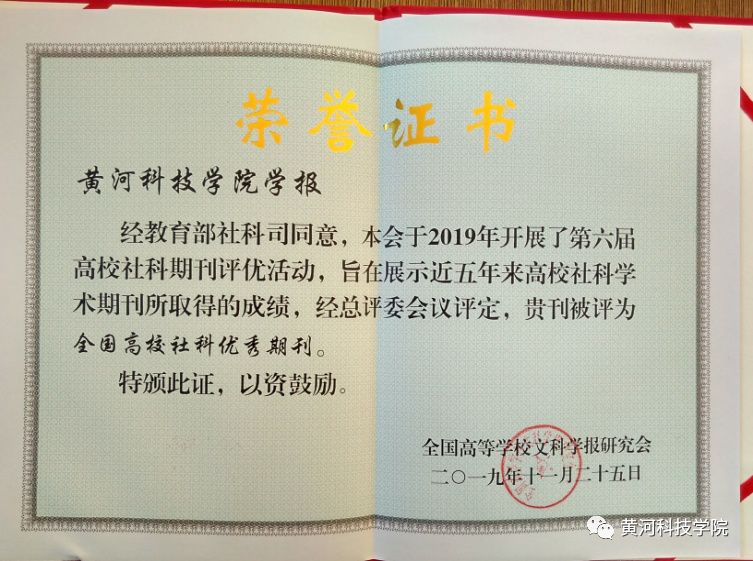 荣誉证书
黄河科技学院学报
经教育部社科司同意，本会于2019年开展了第六届
高校社科期刊评优活动，旨在展示近五年来高校社科学
术期刊所取得的成绩，经总评委会议评定，贵刊被评为
全国高校社科优秀期刊。
特颁此证，以资鼓励。
全国高等学校文科学报研究会
二〇一九年十一月二十五日
黄河科技学院